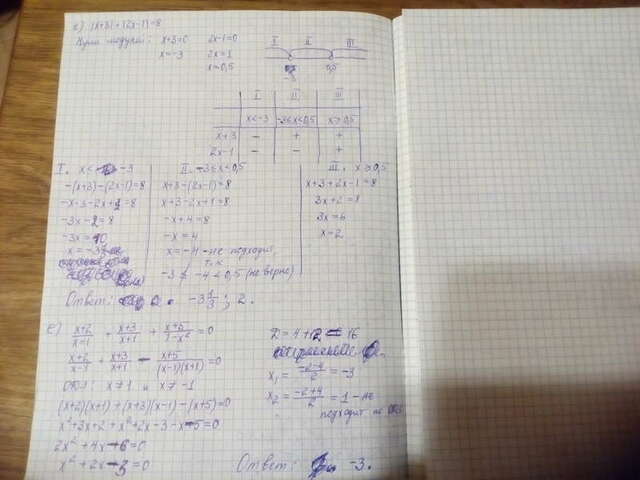 |x+3|+|2x-1|=8
Нули модулей: x+3=0 2x-1=0
x=-3 2x=1
x=0,5
I II III
-3 0,5
I II III
x<-3 -3≤x<0,5 x≥0,5
x+3 - + +
2x-1 - - +
I. x<-3 II. -3≤x<0,5 III. x≥0,5
-(x+3)-(2x-1)=8 x+3-(2x-1)=8 x+3+2x-1=8
-x-3-2x+1=8 x+3-2x+1=8 3x+2=8
-3x-2=8 -x+4=8 3x=6
-3x=10 -x=4 x=2
x=-4 - не подходит,
т.к
-3 ≰ -4 < 0,5 (не верно)
Ответ: -3 1/3; 2.
e) (x+2)/(x-1) + (x+3)/(x+1) + (x+5)/(1-x²) =0 D=4+12=16
(x+2)/(x-1) + (x+3)/(x+1) - (x+5)/((x-1)(x+1)) =0
x₁= (-2-4)/2 =-3
ОДЗ: x≠1 и x≠-1
x₂= (-2+4)/2 =1 - не
подходит по ОДЗ
(x+2)(x+1)+(x+3)(x-1)-(x+5)=0
x²+3x+2+x²+2x-3-x-5=0
2x²+4x-6=0
x²+2x-3=0 Ответ: -3.